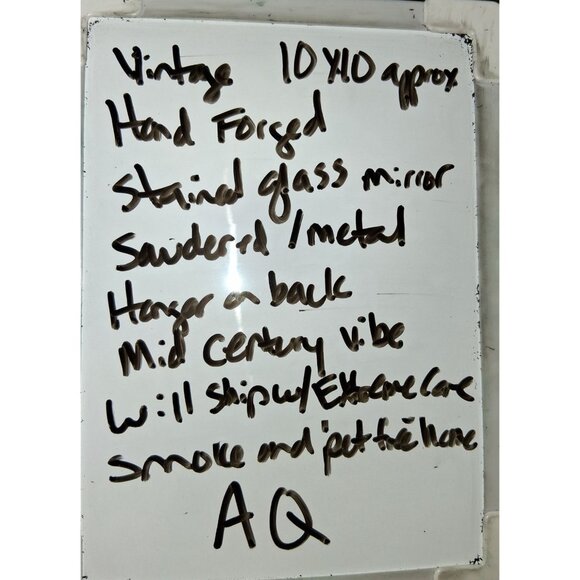 Vintage 10 X10 approx
Hand Forged
Stained glass mirror
Sawdered / metal
Hangar on back
Mid century vibe
Will ship w/ Extreme Care
smoke and pet free home
AQ